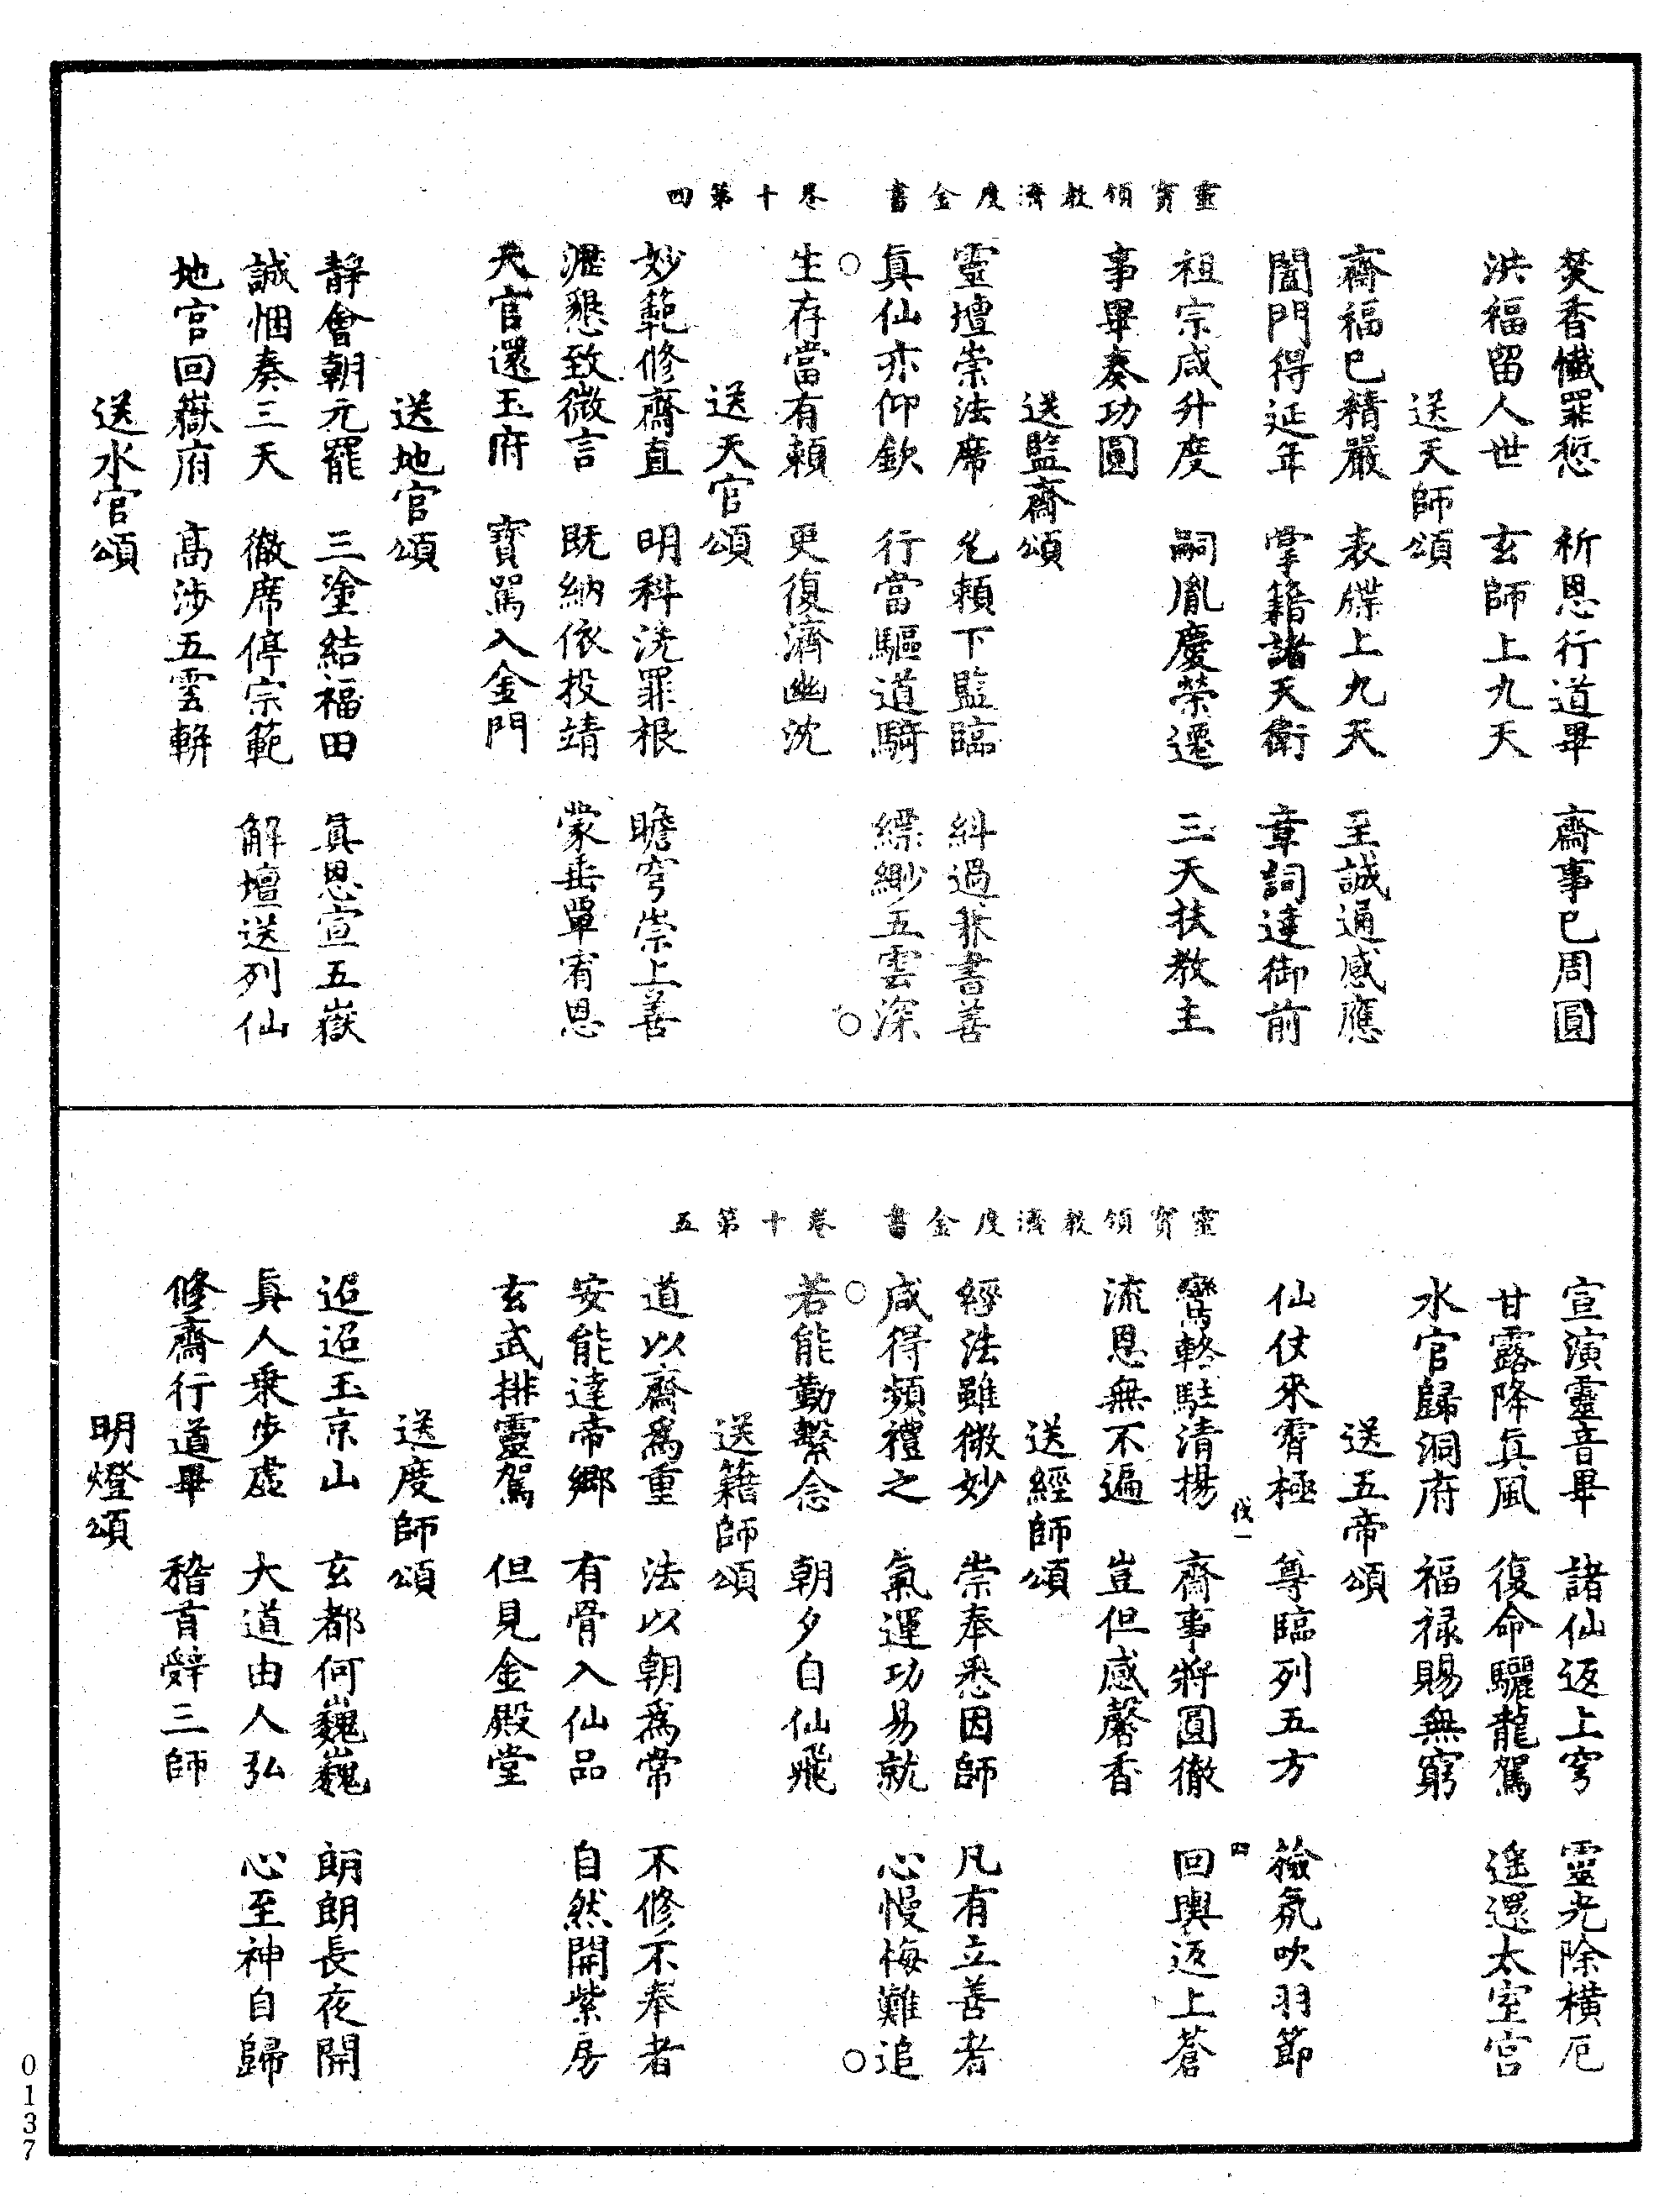 靈寶領教濟度金書　卷十第四
焚香懺罪愆　祈恩行道畢　齋事已周圓
洪福留人世　玄師上九天
送天師頌
齋福已精嚴　表牒上九天　至誠通感應
闔門得延年　掌籍諸天衛　章詞達御前
祖宗咸升度　嗣胤慶榮遷　三天扶教主
事畢奏功圓
送監齋頌
靈壇崇法席　允賴下監臨　糾過兼書善
眞仙亦仰欽　行當驅道騎　縹緲五雲深
生存當有賴　更復濟幽沈
送天官頌
妙範修齋直　明科洗罪根　瞻穹崇上善
瀝懇致微言　既納依投靖　蒙垂單宥恩
天官還玉府　寶駕入金門
送地官頌
靜會朝元罷　三塗結福田　眞恩宣五嶽
誠悃奏三天　徹席停宗範　解壇送列仙
地官回嶽府　高涉五雲軿
送水官頌
靈寶領教濟度金書　卷十第五
宣演靈音畢　諸仙返上穹　靈光除橫厄
甘露降眞風　復命驪龍駕　遙還太室宮
水官歸洞府　福祿賜無窮
送五帝頌
仙仗來霄極　尊臨列五方　祲氛吹羽節
伐一　四
鸞輅駐清揚　齋事將圓徹　回輿返上蒼
流恩無不遍　豈但感馨香
送經師頌
經法雖微妙　崇奉悉因師　凡有立善者
咸得頻禮之　氣運功易就　心慢悔難追
若能勤繫念　朝夕自仙飛
送籍師頌
道以齋爲重　法以朝爲常　不修不奉者
安能達帝鄉　有骨入仙品　自然開紫房
玄武排靈駕　但見金殿堂
送度師頌
迢迢玉京山　玄都何巍巍　朗朗長夜開
眞人乘步虛　大道由人弘　心至神自歸
修齋行道畢　稽首辭三師
明燈頌
0137